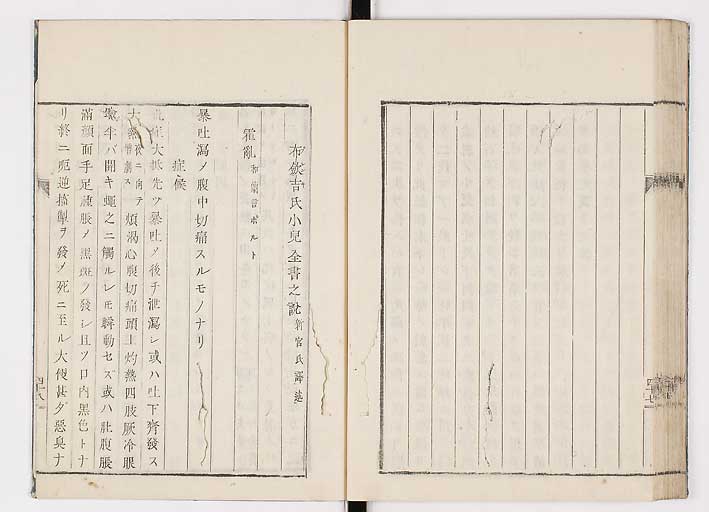 布歛吉氏小兒全書之訳 新宮氏譯述
霍亂 和蘭言ボルト
暴吐瀉メ腹中切痛スルモノナリ
症候
此症大抵先ツ暴吐メ後チ泄瀉シ或ハ吐下齊發ス
大熱 煩渴心腹切痛頭上灼熱四肢厥冷眼
瞼半バ開キ蠅之ニ觸ルレモ瞬動セズ或ハ肚腹脹
滿顔面手足腫脹メ黒斑ヲ發シ且ツ口内黒色トナ
リ終ニ呃逆搐掣ヲ發メ死ニ至ル大便甚ダ惡臭ナ
四十八
四十七